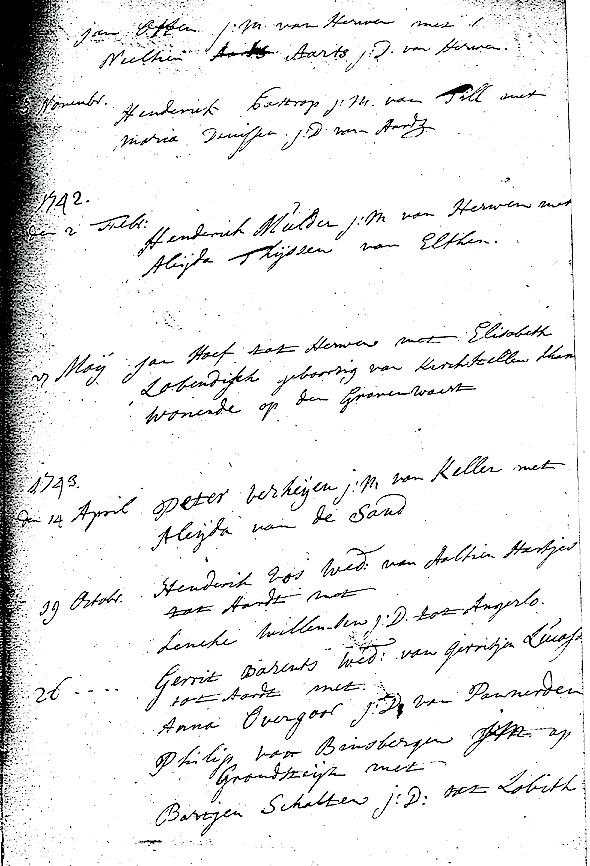 Jan Otten j:M van Herwen met
Neeltien Aarts j:D. van Herwen.
5 Novembr. Henderick Bostrop j:M. van Till met
maria Denissen j:D van Aardt
1742.
den 2 Febr: Henderick Mulder j:M van Herwen met
Aleijda Thijssen van Elthen.
27 Maij Jan Hoef tot Herwen met Elisabeth
Lobendisch geboortig van Kirchhellen thans
wonende op den Gravenwaert
1743.
den 14 April Peter verheijen j:M van Keller met
Aleijda van de Sand
19 Octobr. Henderik Vos Wed: van Aaltien Hartjes
tot Aardt met
Leneke Willemsen j:D. tot Angerlo.
26 .... Gerrit Barents Wed: van Gerritjen Lucass
tot Aardt met
Anna Overgoor j:D. van Pannerden
Philip van Binsbergen j:M. op
Grondsteijn met
Bartjen Scholten j:D: tot Lobith